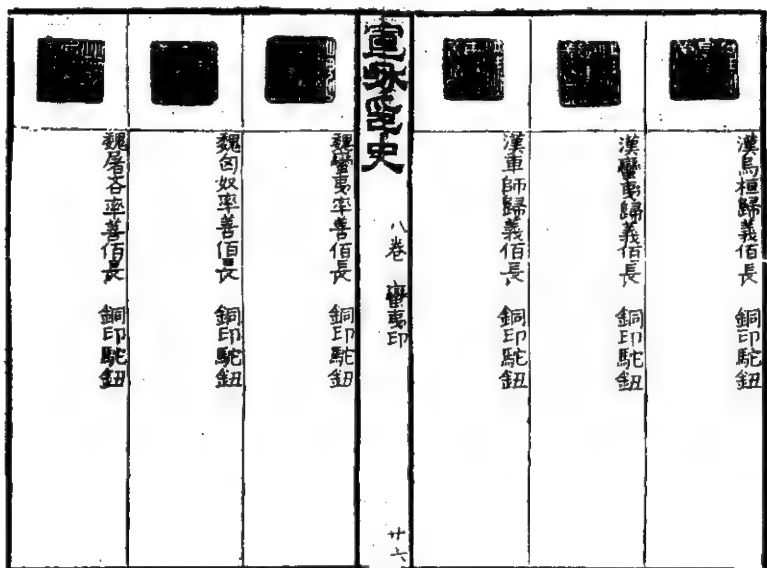 漢烏桓歸義佰長 銅印駝鈕
漢蠻夷歸義佰長 銅印駝鈕
漢車師歸義佰長 銅印駝鈕
宣和印史 八卷 蠻夷印 廿六
魏蠻夷率善佰長 銅印駝鈕
魏匈奴率善佰長 銅印駝鈕
魏屠各率善佰長 銅印駝鈕